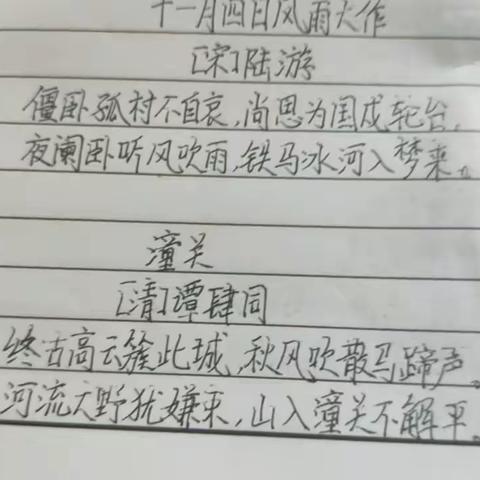 十一月四日风雨大作
[宋]陆游
僵卧孤村不自哀,尚思为国戍轮台,
夜阑卧听风吹雨,铁马冰河入梦来。
潼关
[清]谭肆同
终古高云簇此城,秋风吹散马蹄声。
河流大野犹嫌束,山入潼关不解平。